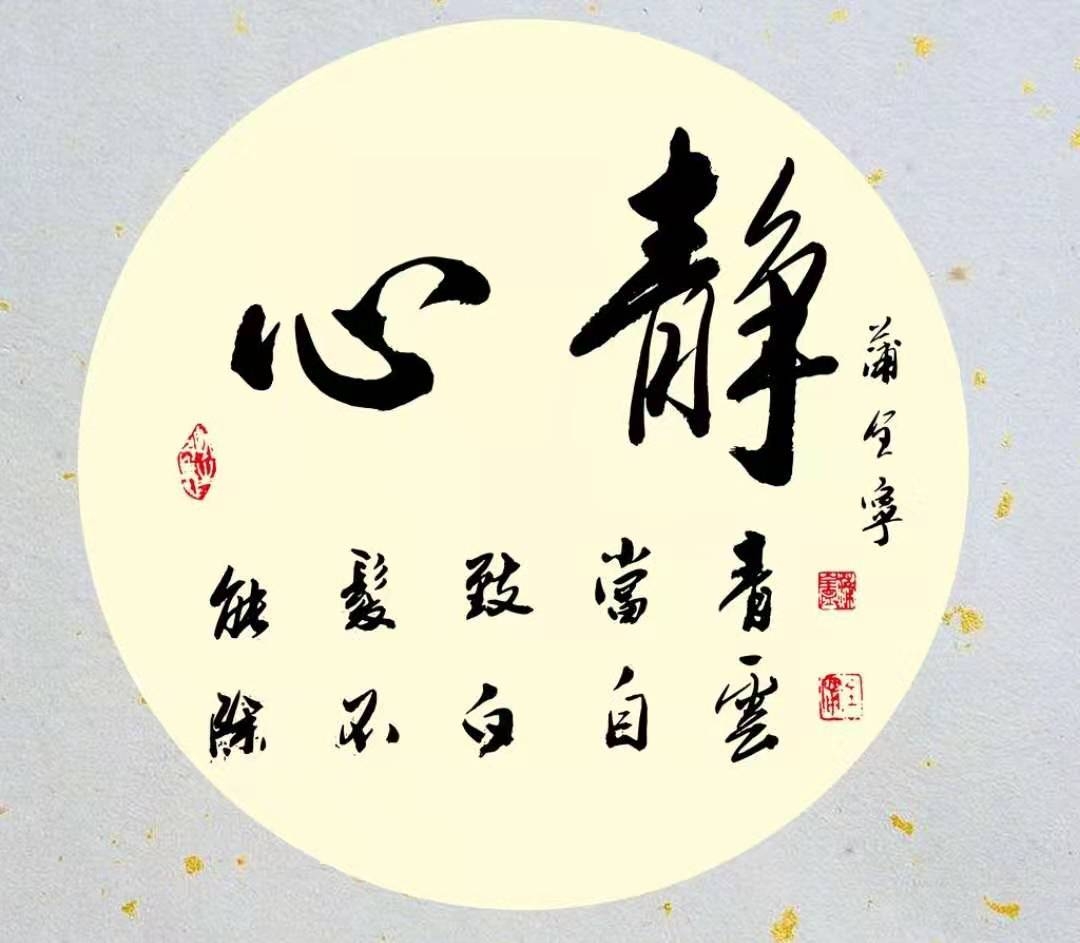 静心
青雲
當自
致白
髮不
能除
蒲全寧